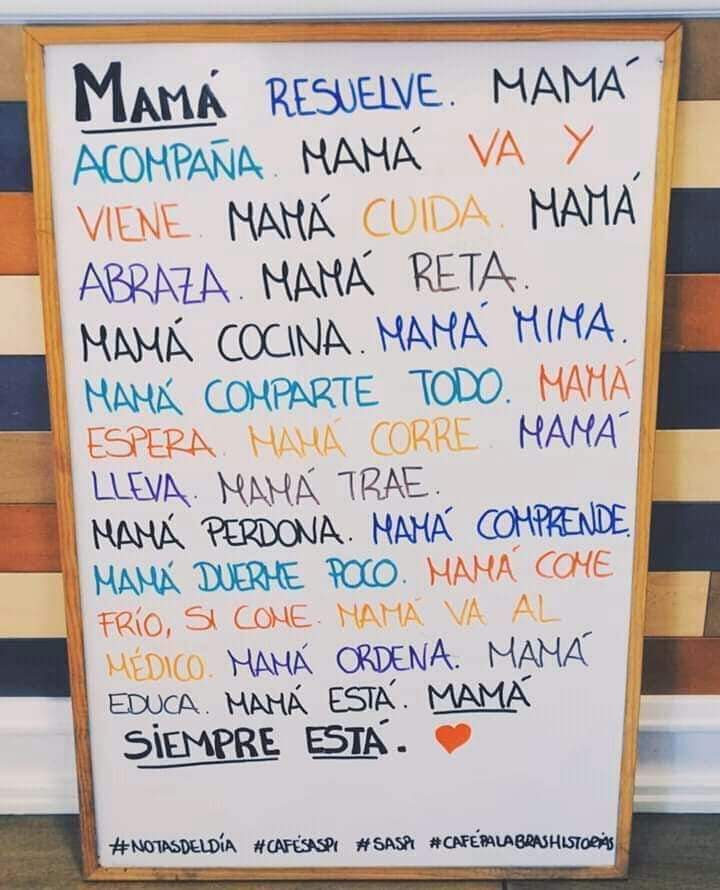 MAMÁ RESUELVE. MAMÁ
ACOMPAÑA. MAMÁ VA Y
VIENE. MAMÁ CUIDA. MAMÁ
ABRAZA. MAMÁ RETA.
MAMÁ COCINA. MAMÁ MIMA.
MAMÁ COMPARTE TODO. MAMÁ
ESPERA. MAMÁ CORRE. MAMÁ
LLEVA. MAMÁ TRAE.
MAMÁ PERDONA. MAMÁ COMPRENDE.
MAMÁ DUERME POCO. MAMÁ COME
FRÍO, SI COME. MAMÁ VA AL
MÉDICO. MAMÁ ORDENA. MAMÁ
EDUCA. MAMÁ ESTÁ. MAMÁ
SIEMPRE ESTÁ.
#NOTASDELDÍA #CAFÉSASPI #SASPI #CAFÉPALABRASHISTORIAS